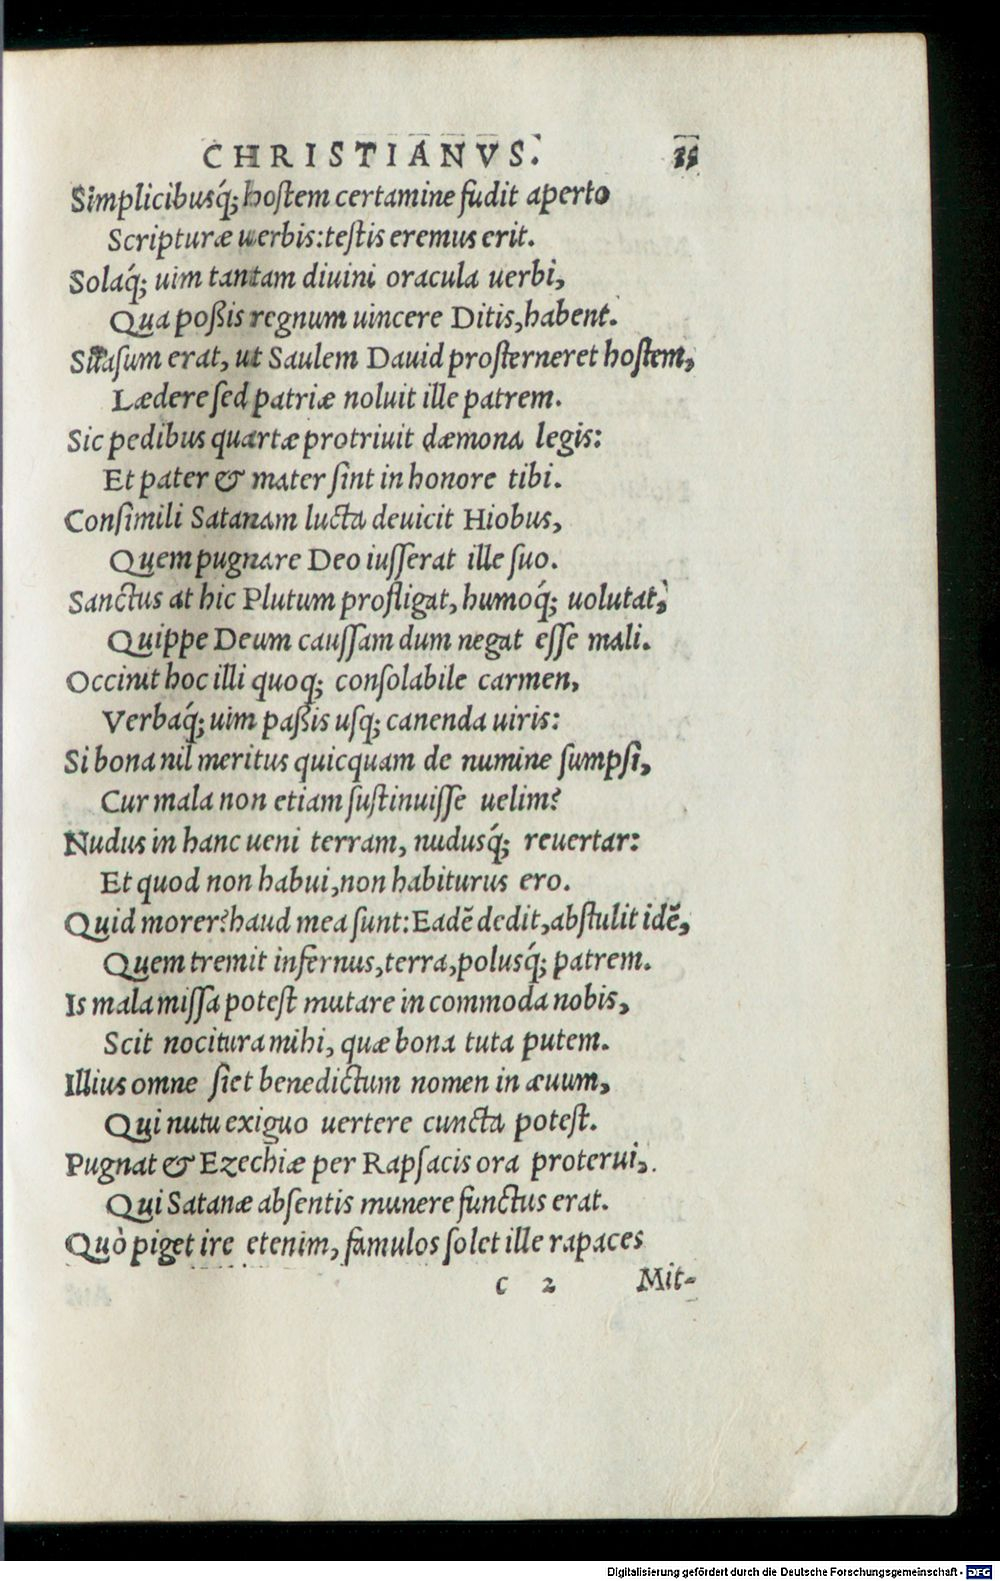 CHRISTIANVS.
Simplicibusq́; hoſtem certamine fudit aperto
Scripturæ uerbis: teſtis eremus erit.
Solaq́; uim tantam diuini oracula uerbi,
Qua poßis regnum uincere Ditis, habent.
Suaſum erat, ut Saulem Dauid proſterneret hoſtem,
Lædere ſed patriæ noluit ille patrem.
Sic pedibus quartæ protriuit dæmona legis:
Et pater & mater ſint in honore tibi.
Conſimili Satanam lucta deuicit Hiobus,
Quem pugnare Deo iuſſerat ille ſuo.
Sanctus at hic Plutum profligat, humoq́; uolutat,
Quippe Deum cauſſam dum negat eſſe mali.
Occinit hoc illi quoq; conſolabile carmen,
Verbaq́; uim paßis uſq; canenda uiris:
Si bona nil meritus quicquam de numine ſumpſi,
Cur mala non etiam ſuſtinuiſſe uelim?
Nudus in hanc ueni terram, nudusq́; reuertar:
Et quod non habui, non habiturus ero.
Quid morer? haud mea ſunt: Eadē dedit, abſtulit idē,
Quem tremit infernus, terra, polusq́; patrem.
Is mala miſſa poteſt mutare in commoda nobis,
Scit nocitura mihi, quæ bona tuta putem.
Illius omne ſiet benedictum nomen in æuum,
Qui nutu exiguo uertere cuncta poteſt.
Pugnat & Ezechiæ per Rapſacis ora proterui,
Qui Satanæ abſentis munere functus erat.
Quò piget ire etenim, famulos ſolet ille rapaces
c 2 Mit-
Digitalisierung gefördert durch die Deutsche Forschungsgemeinschaft - DFG